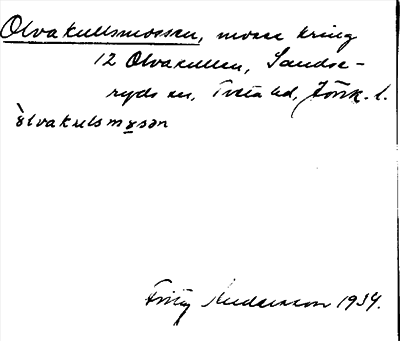 Olvakullsmossen, mosse kring
12 Olvakullen, Sandse-
ryds sn, Tveta hd, Jönk. l.
`ɷlvakulsmɷsən
Fritz Andersson 1934.